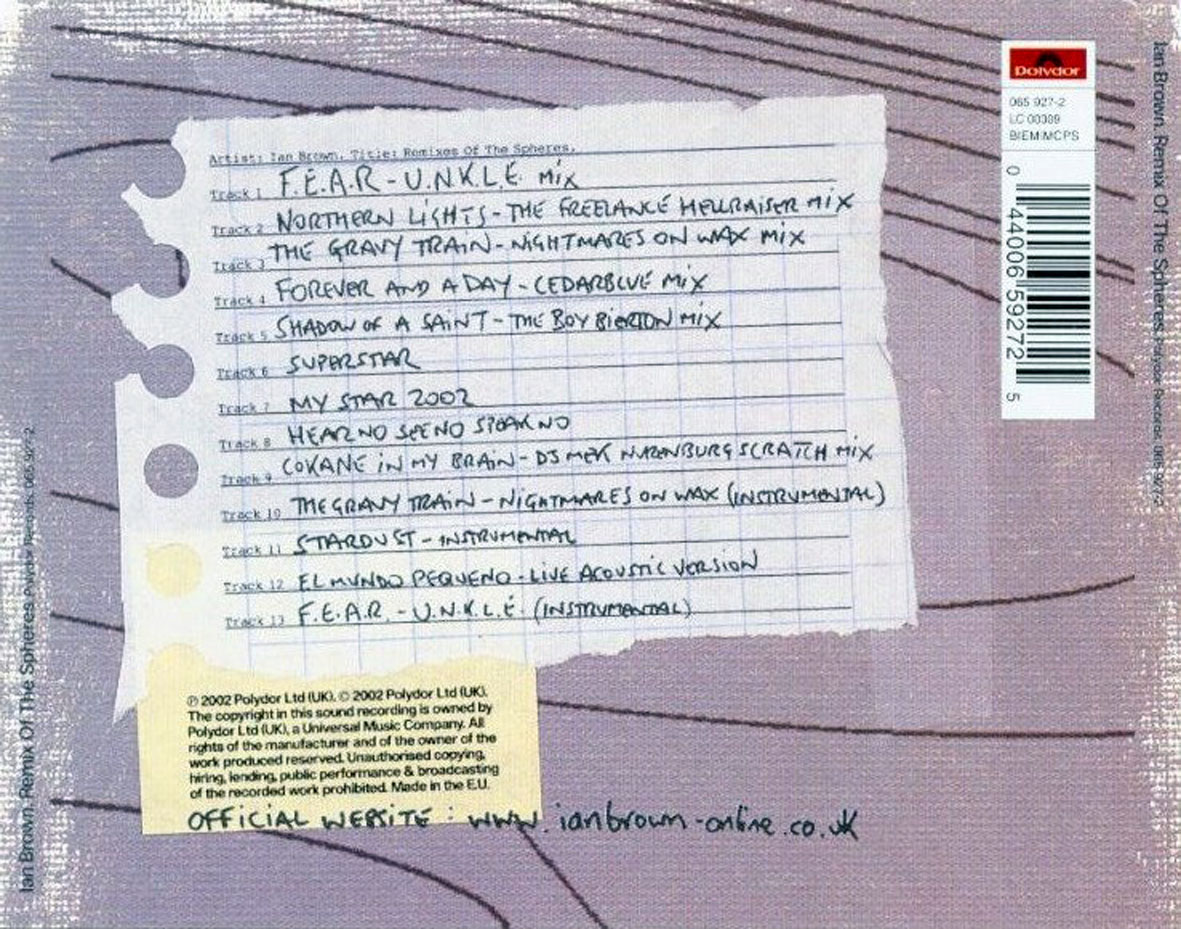 Artist: Ian Brown. Title: Remixes Of The Spheres.
Track 1 F.E.A.R - U.N.K.L.E. MiX
Track 2 NORTHERN LiGHTS - THE FREELANCE HELLRAISER MiX
Track 3 THE GRAVY TRAiN - NiGHTMARES ON WAX MiX
Track 4 FOREVER AND A DAY - CEDARBLUE MiX
Track 5 SHADOW OF A SAiNT - THE BOY BiERTON MiX
Track 6 SUPERSTAR
Track 7 MY STAR 2002
Track 8 HEAR NO SEE NO SPEAK NO
Track 9 COKANE iN MY BRAiN - DJ MEK NURENBURG SCRATCH MiX
Track 10 THE GRAVY TRAiN - NiGHTMARES ON WAX (INSTRUMENTAL)
Track 11 STARDUST - INSTRUMENTAL
Track 12 EL MUNDO PEQUENO - LiVE ACOUSTiC VERSiON
Track 13 F.E.A.R. - U.N.K.L.E. (INSTRUMENTAL)
℗ 2002 Polydor Ltd (UK). © 2002 Polydor Ltd (UK).
The copyright in this sound recording is owned by
Polydor Ltd (UK), a Universal Music Company. All
rights of the manufacturer and of the owner of the
work produced reserved. Unauthorised copying,
hiring, lending, public performance & broadcasting
of the recorded work prohibited. Made in the E.U.
OFFiCiAL WEBSiTE : www.ianbrown-online.co.uk
Polydor
065 927-2
LC 00309
BIEM/MCPS
0 44006 59272 5
Ian Brown. Remix Of The Spheres. Polydor Records. 065 927-2
Ian Brown. Remix Of The Spheres. Polydor Records. 065 927-2